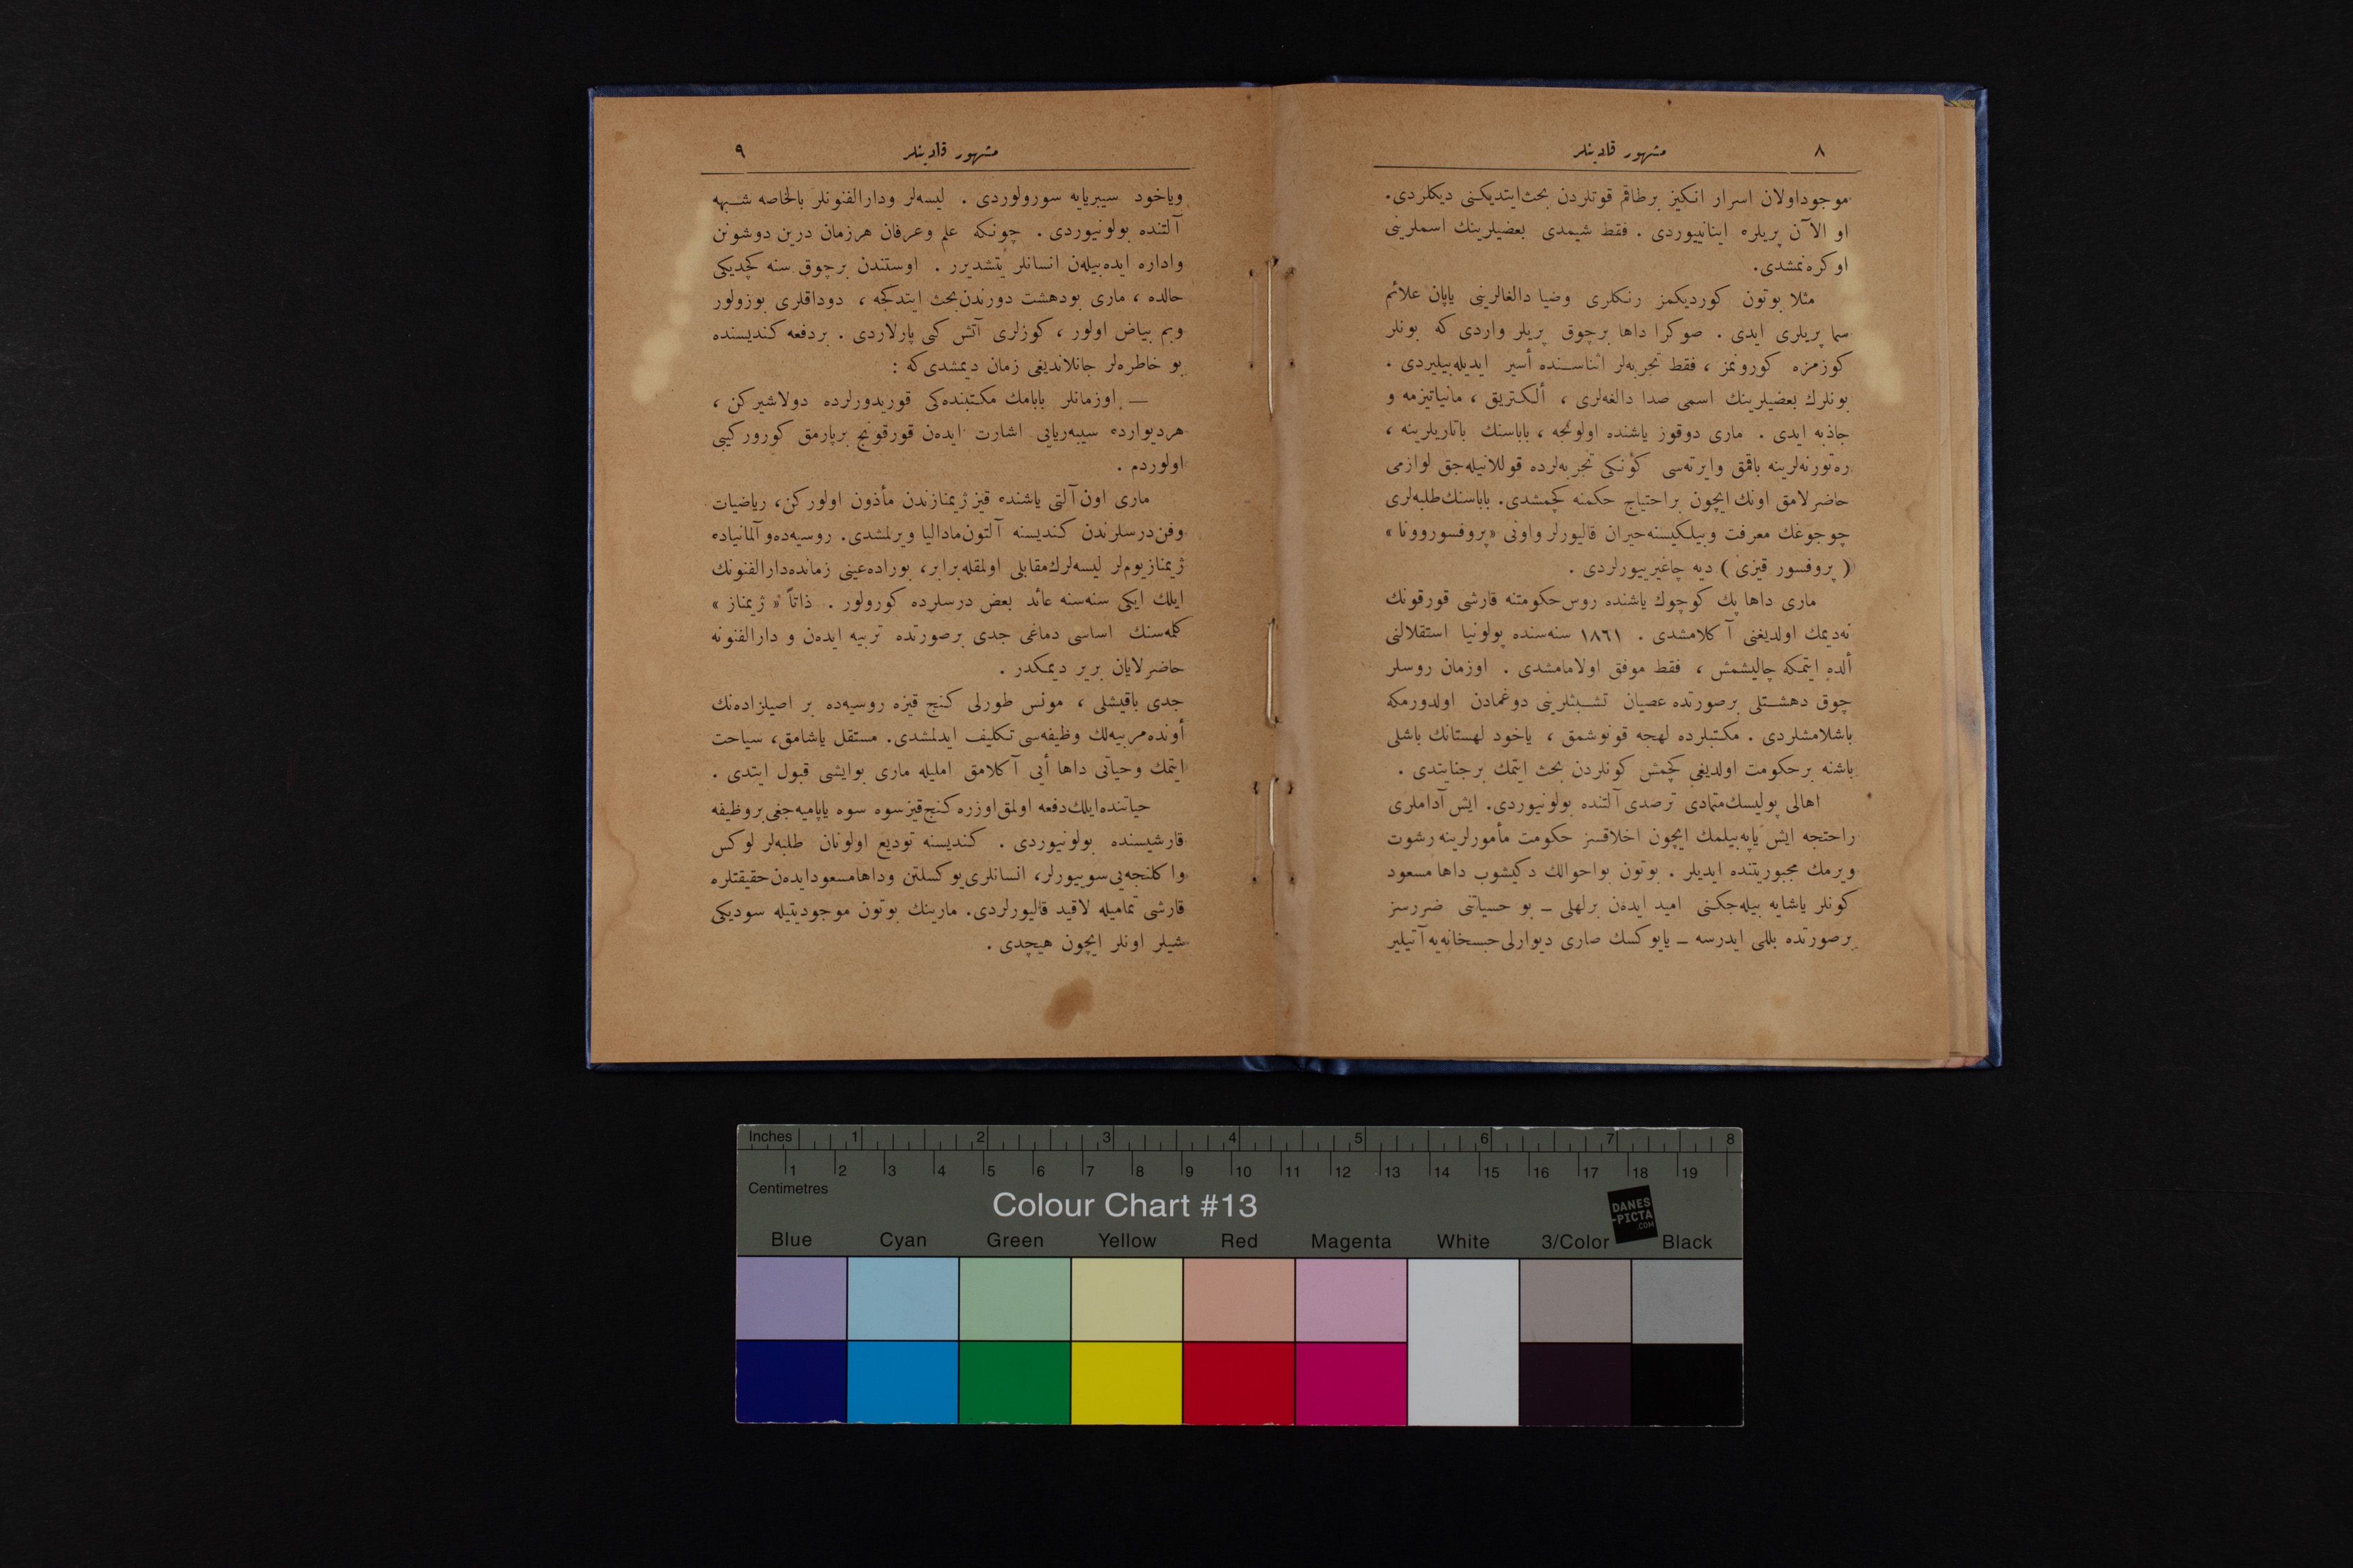 ٨
مشهور قادینلر
موجود اولان اسرار انكیز برطاقم قوتلردن بحث ایتدیكنی دیكلردی.
او الآن پریلره اینانییوردی . فقط شیمدی بعضیلرینك اسملرینی
اوكره‌نمشدی.
مثلا بوتون كوردیكمز رنكلری وضیا دالغالرینی یاپان علائم
سما پریلری ایدی . صوكرا داها برچوق پریلر واردی كه بونلر
كوزمزه كورونمز ، فقط تجربه‌لر اثناسنده أسیر ایدیله‌بیلیردی .
بونلرك بعضیلرینك اسمی صدا دالغه‌لری ، ألكتریق ، مانیاتیزمه و
جاذبه ایدی . ماری دوقوز یاشنده اولونجه ، باباسنك باتاریلرینه ،
ره‌تورنه‌لرینه باقمق وایرته‌سی كونكی تجربه‌لرده قوللانیله‌جق لوازمی
حاضرلامق اونك ایچون براحتیاج حكمنه كچمشدی. باباسنك طلبه‌لری
چوجوغك معرفت وبیلكیسنه حیران قالیورلر واونی «پروفسوروونا»
( پروفسور قیزی ) دیه چاغیرییورلردی .
ماری داها پك كوچوك یاشنده روس حكومتنه قارشی قورقونك
نه‌دیمك اولدیغنی آكلامشدی . ١٨٦١ سنه‌سنده پولونیا استقلالنی
ألده ایتمكه چالیشمش ، فقط موفق اولامامشدی . اوزمان روسلر
چوق دهشتلی برصورتده عصیان تشبثلرینی دوغمادن اولدورمكه
باشلامشلردی . مكتبلرده لهجه قونوشمق ، یاخود لهستانك باشلی
باشنه برحكومت اولدیغی كچمش كونلردن بحث ایتمك برجنایتدی .
اهالی پولیسك متمادی ترصدی آلتنده بولونیوردی. ایش آداملری
راحتجه ایش یاپه‌بیلمك ایچون اخلاقسز حكومت مأمورلرینه رشوت
ویرمك مجبوریتنده ایدیلر . بوتون بواحوالك دكیشوب داها مسعود
كونلر یاشایه بیله‌جكنی امید ایده‌ن برلهلی ــ بو حسیاتنی ضررسز
برصورتده بللی ایدرسه ــ یایوكسك صاری دیوارلی حبسخانه‌یه آتیلیر
٩
مشهور قادینلر
ویاخود سیبریایه سورولوردی . لیسه‌لر ودارالفنونلر بالخاصه شبهه
آلتنده بولونیوردی . چونكه علم وعرفان هرزمان درین دوشونن
واداره ایده‌بیله‌ن انسانلر یتشدیرر . اوستندن برچوق سنه كچدیكی
حالده ، ماری بودهشت دورندن بحث ایتدكجه ، دوداقلری بوزولور
وبم بیاض اولور ، كوزلری آتش كبی پارلاردی . بردفعه كندیسنده
بو خاطره‌لر جانلاندیغی زمان دیمشدی كه :
ــ اوزمانلر بابامك مكتبنده‌كی قوریدورلرده دولاشیركن ،
هردیوارده سیبه‌ریایی اشارت ایده‌ن قورقونج برپارمق كورور كیبی
اولوردم .
ماری اون آلتی یاشنده قیز ژیمنازندن مأذون اولوركن، ریاضیات
وفن درسلرندن كندیسنه آلتون مادالیا ویرلمشدی. روسیه‌ده و آلمانیاده
ژیمنازیوم‌لر لیسه‌لرك مقابلی اولمقله‌برابر، بوراده عینی زمانده دارالفنونك
ایلك ایكی سنه‌سنه عائد بعض درسلرده كورولور . ذاتاً « ژیمناز »
كلمه‌سنك اساسی دماغی جدی برصورتده تربیه ایده‌ن و دارالفنونه
حاضرلایان بریر دیمكدر .
جدی باقیشلی ، مونس طورلی كنج قیزه روسیه‌ده بر اصیلزاده‌نك
أونده مربیه‌لك وظیفه‌سی تكلیف ایدلمشدی. مستقل یاشامق، سیاحت
ایتمك وحیاتی داها أیی آكلامق املیله ماری بوایشی قبول ایتدی .
حیاتنده ایلك دفعه اولمق اوزره كنج قیز سوه سوه یاپامیه‌جغی بروظیفه
قارشیسنده بولونیوردی . كندیسنه تودیع اولونان طلبه‌لر لوكس
واكلنجه‌یی سوییورلر، انسانلری یوكسلتن وداها مسعود ایده‌ن حقیقتلره
قارشی تمامیله لاقید قالیورلردی. مارینك بوتون موجودیتیله سودیكی
شیلر اونلر ایچون هیچدی .
Inches 1 2 3 4 5 6 7 8
1 2 3 4 5 6 7 8 9 10 11 12 13 14 15 16 17 18 19
Centimetres
Colour Chart #13
DANES
-PICTA
.COM
Blue Cyan Green Yellow Red Magenta White 3/Color Black